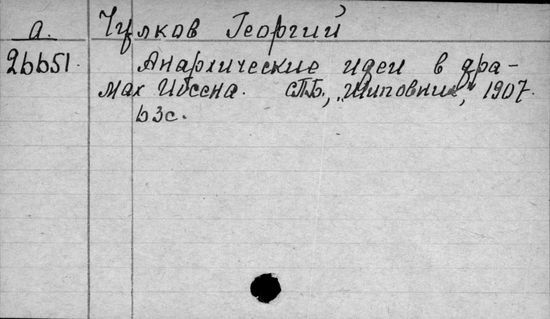 а. Чулков Георгий
26651 Анархические идеи в дра-
мах Ибсена. СПБ., "Шиповник", 1907.
63с.